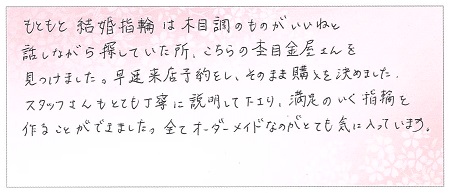 もともと結婚指輪は木目調のものがいいねと
話しながら探していた所、こちらの杢目金屋さんを
見つけました。早速来店予約をし、そのまま購入を決めました。
スタッフさんもとても丁寧に説明して下さり、満足のいく指輪を
作ることができました。全てオーダーメイドなのがとても気に入っています。